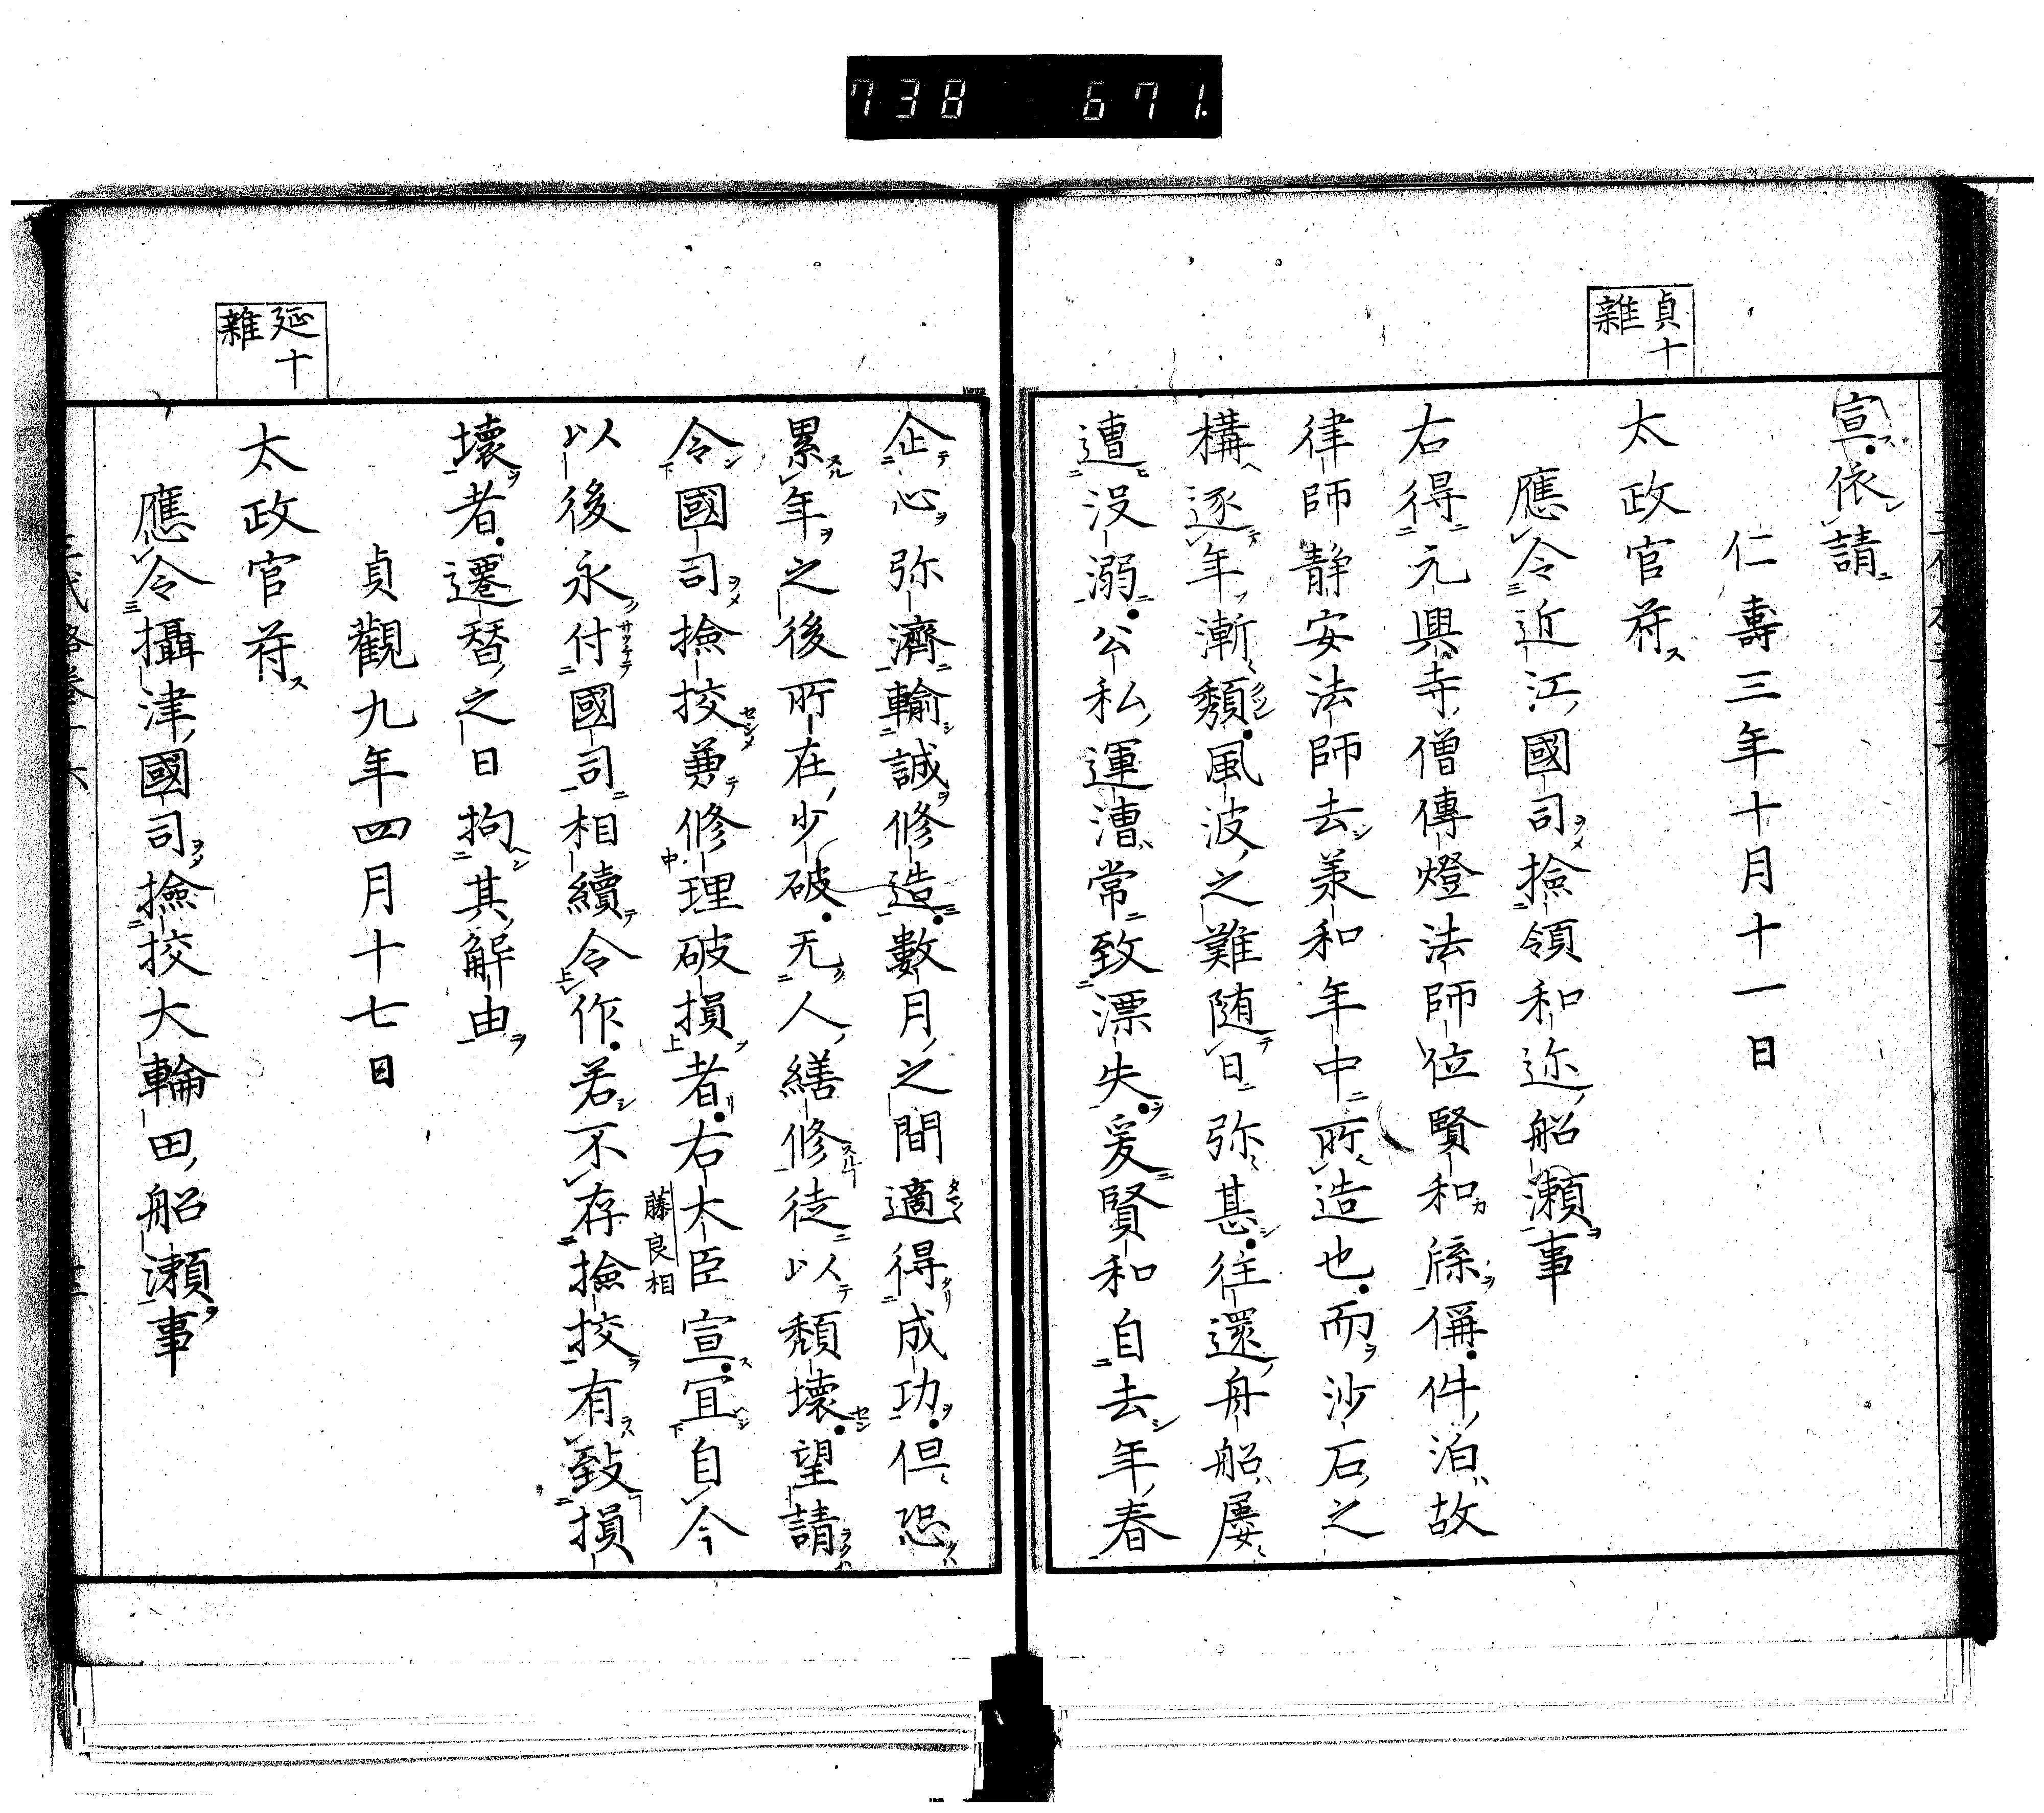 738 671.
貞十
雜
宣依請
仁壽三年十月十一日
太政官符
應令近江國司撿領和迩船瀬事
右得元興寺僧傳燈法師位賢和牒偁件泊故
律師静安法師去承和年中所造也而沙石之
構逐年漸頽風波之難随日弥甚往還舟船屡
遭没溺公私運漕常致漂失爰賢和自去年春
企心弥濟輸誠修造數月之間適得成功但恐
累年之後所在少破无人繕修徒以頽壊望請
令國司撿挍兼修理破損者右大臣宣宜自今
藤良相
以後永付國司相續令作若不存撿挍有致損
壊者遷替之日拘其解由
貞觀九年四月十七日
延十
雜
太政官符
應令攝津國司撿挍大輪田船瀬事